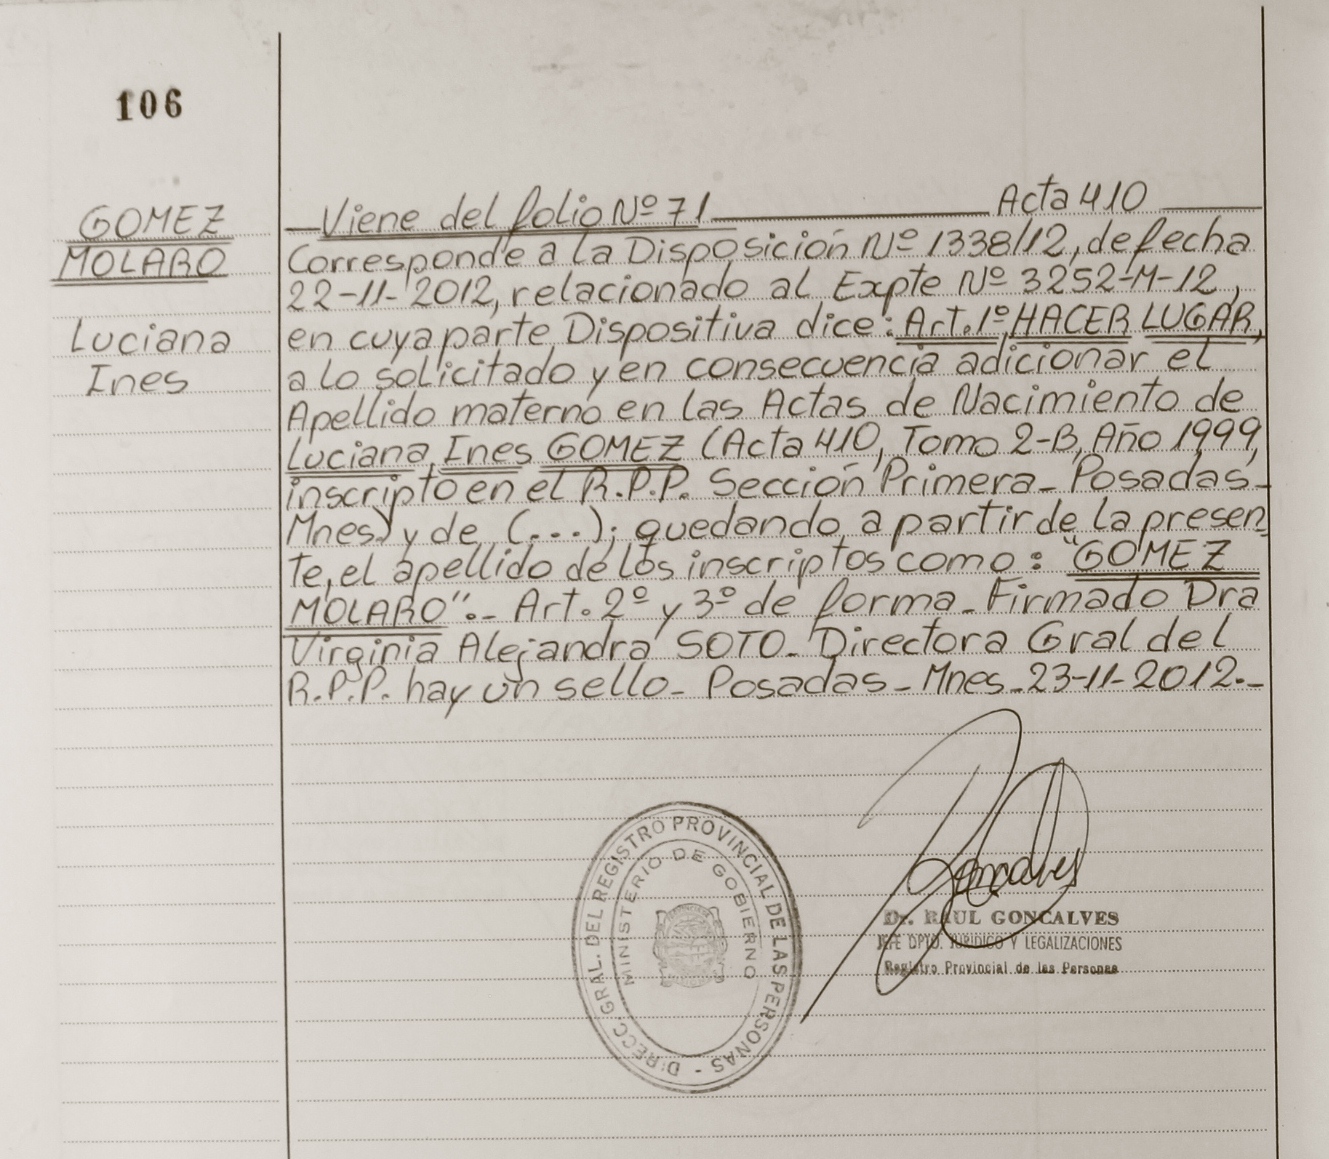 106
GOMEZ
MOLARO
Luciana
Ines
Viene del folio Nº 71 Acta 410
Corresponde a la Disposición Nº 1338/12, de fecha
22-11-2012, relacionado al Expte Nº 3252-M-12,
en cuya parte Dispositiva dice: Art. 1º HACER LUGAR,
a lo solicitado y en consecuencia adicionar el
Apellido materno en las Actas de Nacimiento de
Luciana Ines GOMEZ (Acta 410, Tomo 2-B, Año 1999,
inscripto en el R.P.P. Sección Primera - Posadas -
Mnes) y de (...); quedando a partir de la presen
te, el apellido de los inscriptos como: "GOMEZ
MOLARO".- Art. 2º y 3º de forma - Firmado Dra
Virginia Alejandra SOTO - Directora Gral del
R.P.P. hay un sello - Posadas - Mnes - 23-11-2012.-
DIRECC. GRAL. DEL REGISTRO PROVINCIAL DE LAS PERSONAS -
MINISTERIO DE GOBIERNO
Goncalves
Dr. RAUL GONCALVES
JEFE DPTO. JURIDICO Y LEGALIZACIONES
Registro Provincial de las Personas